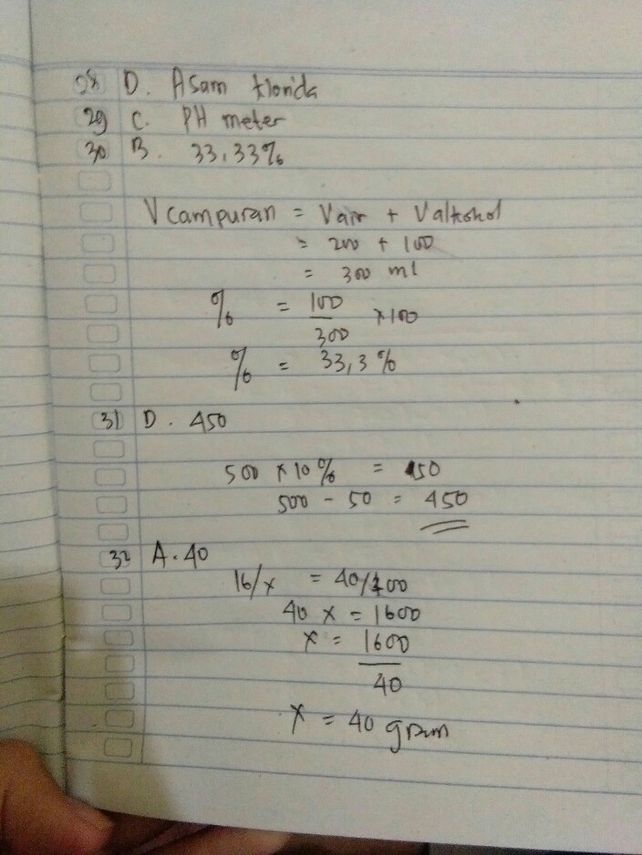 28 D. Asam klorida
29 C. PH meter
30 B. 33,33%
V campuran = Vair + Valkohol
= 200 + 100
= 300 ml
% = 100/300 x100
% = 33,3%
31 D. 450
500 x 10% = 50
500 - 50 = 450
32 A. 40
16/x = 40/100
40 x = 1600
x = 1600/40
x = 40 gram